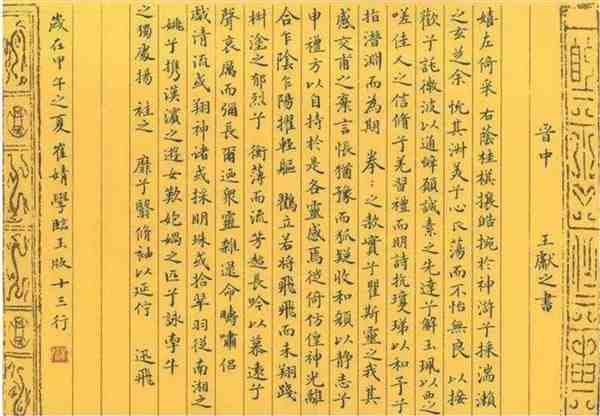 晉中 王獻之書
嬉左倚采 右蔭桂棋攘皓捥於神滸兮採湍瀨
之玄芝余 悅其淑美兮心振蕩而不怡無良 以接
歡兮託微波以通辭願誠素之先達兮解玉珮以要
嗟佳人之信脩兮羌習禮而明詩抗瓊珶以和予兮
指潛淵而為期 拳:之款實兮懼斯靈之我其
感交甫之棄言悵猶豫而狐疑收和顏以静志兮
申禮方以自持於是各靈感焉徙倚仿偟神光離
合乍陰乍陽擢輕軀 鶴立若將飛飛而未翔踐
椒塗之郁烈兮 衡薄而流芳超長吟以慕遠兮
聲哀厲而彌長爾迺衆靈雜遝命疇嘯侶
戲清流或翔神渚或採明珠或拾翠羽從南湘之
姚兮攜漢濱之遊女歎匏媧之匹兮詠牽牛
之獨處揚 袿之 靡兮翳脩袖以延佇 迅飛
歲在甲午之夏崔婧學臨玉版十三行